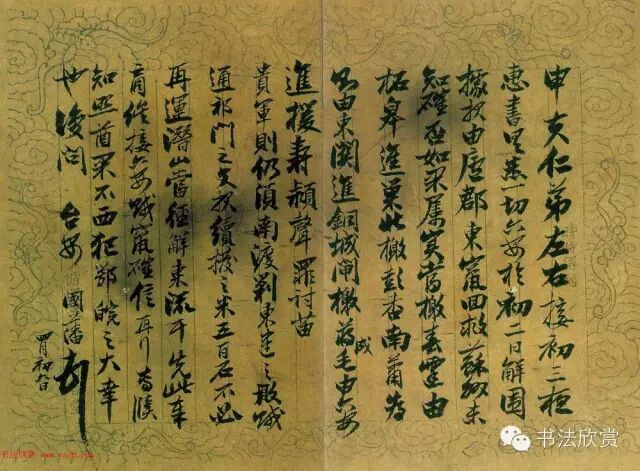 申夫仁弟左右接初三夜
惠書具悉一切六安於初二日解圍
據報由廬郡東竄回救蘇州未
知確否如果屬實當檄春霆由
柘皋進巢此檄彭杏南蕭為
則由東關進銅城閘檄蔣毛由六安
成
進援壽潁聲罪討苗
貴軍則仍須南渡剿東建之敗賊
通祁門之氣 續撥之米五百石不必
再運潛山當徑解東流 先此奉
商 接六安賊竄確信再行
知匪酋果不西犯鄂皖之大幸
也復問 台安 國藩頓
四月初 日
书法欣赏
书法欣赏